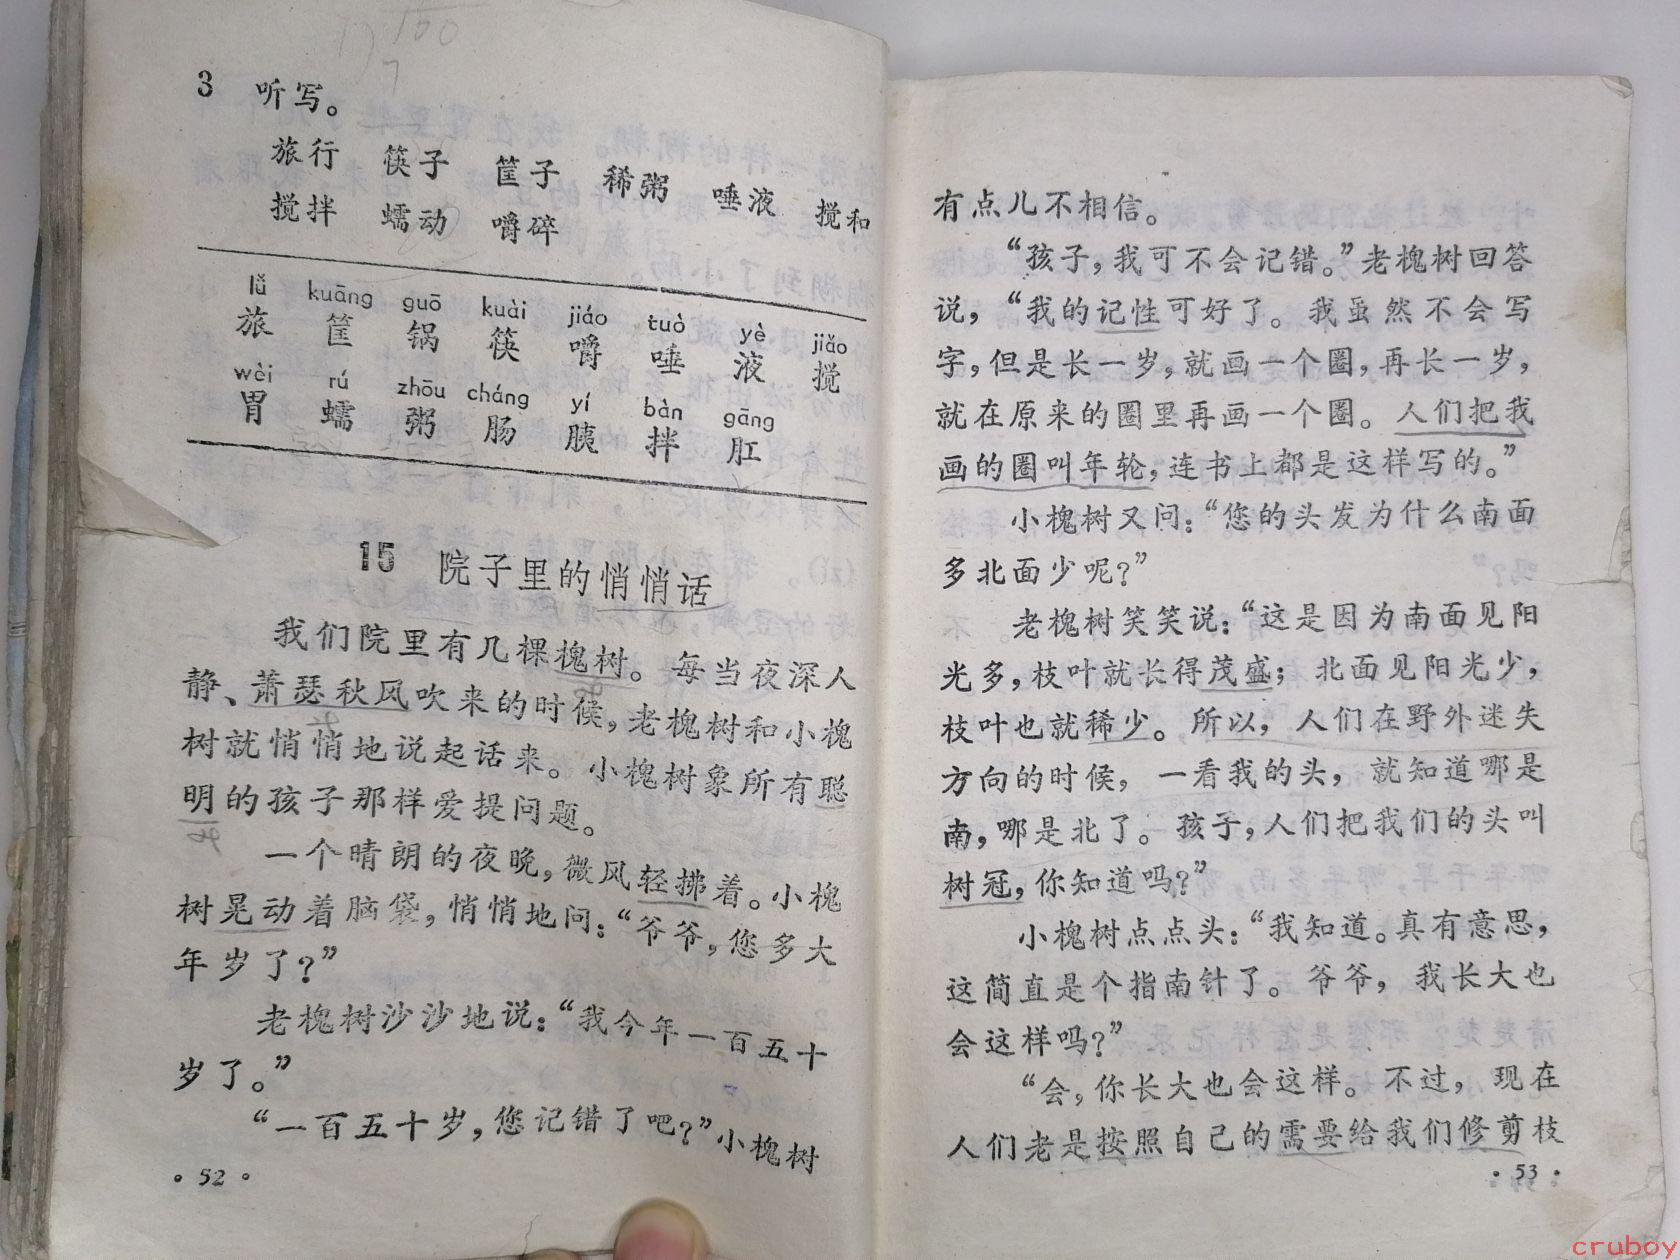 3 听写。
旅行 筷子 筐子 稀粥 唾液 搅和
搅拌 蠕动 嚼碎
lǚ kuāng guō kuài jiáo tuò yè jiǎo
旅 筐 锅 筷 嚼 唾 液 搅
wèi rú zhōu cháng yí bàn gāng
胃 蠕 粥 肠 胰 拌 肛
15 院子里的悄悄话
我们院里有几棵槐树。每当夜深人
静、萧瑟秋风吹来的时候，老槐树和小槐
树就悄悄地说起话来。小槐树象所有聪
明的孩子那样爱提问题。
一个晴朗的夜晚，微风轻拂着。小槐
树晃动着脑袋，悄悄地问：“爷爷，您多大
年岁了？”
老槐树沙沙地说：“我今年一百五十
岁了。”
“一百五十岁，您记错了吧？”小槐树
·52·
有点儿不相信。
“孩子，我可不会记错。”老槐树回答
说，“我的记性可好了。我虽然不会写
字，但是长一岁，就画一个圈，再长一岁，
就在原来的圈里再画一个圈。人们把我
画的圈叫年轮，连书上都是这样写的。”
小槐树又问：“您的头发为什么南面
多北面少呢？”
老槐树笑笑说：“这是因为南面见阳
光多，枝叶就长得茂盛；北面见阳光少，
枝叶也就稀少。所以，人们在野外迷失
方向的时候，一看我的头，就知道哪是
南，哪是北了。孩子，人们把我们的头叫
树冠，你知道吗？”
小槐树点点头：“我知道。真有意思，
这简直是个指南针了。爷爷，我长大也
会这样吗？”
“会，你长大也会这样。不过，现在
人们老是按照自己的需要给我们修剪枝
·53·
cruboy